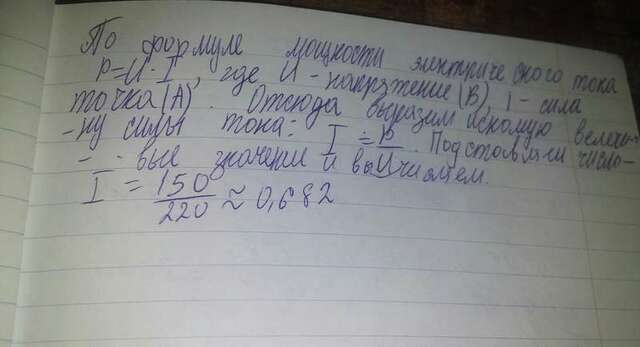 По формуле мощности электрического тока
P=U·I, где U - напряжение (В), I - сила
точка (А). Отсюда выразим искомую величи-
-ну силы тока: I = P/U. Подставляем число-
- вые значения и вычисляем.
I = 150/220 ≈ 0,682